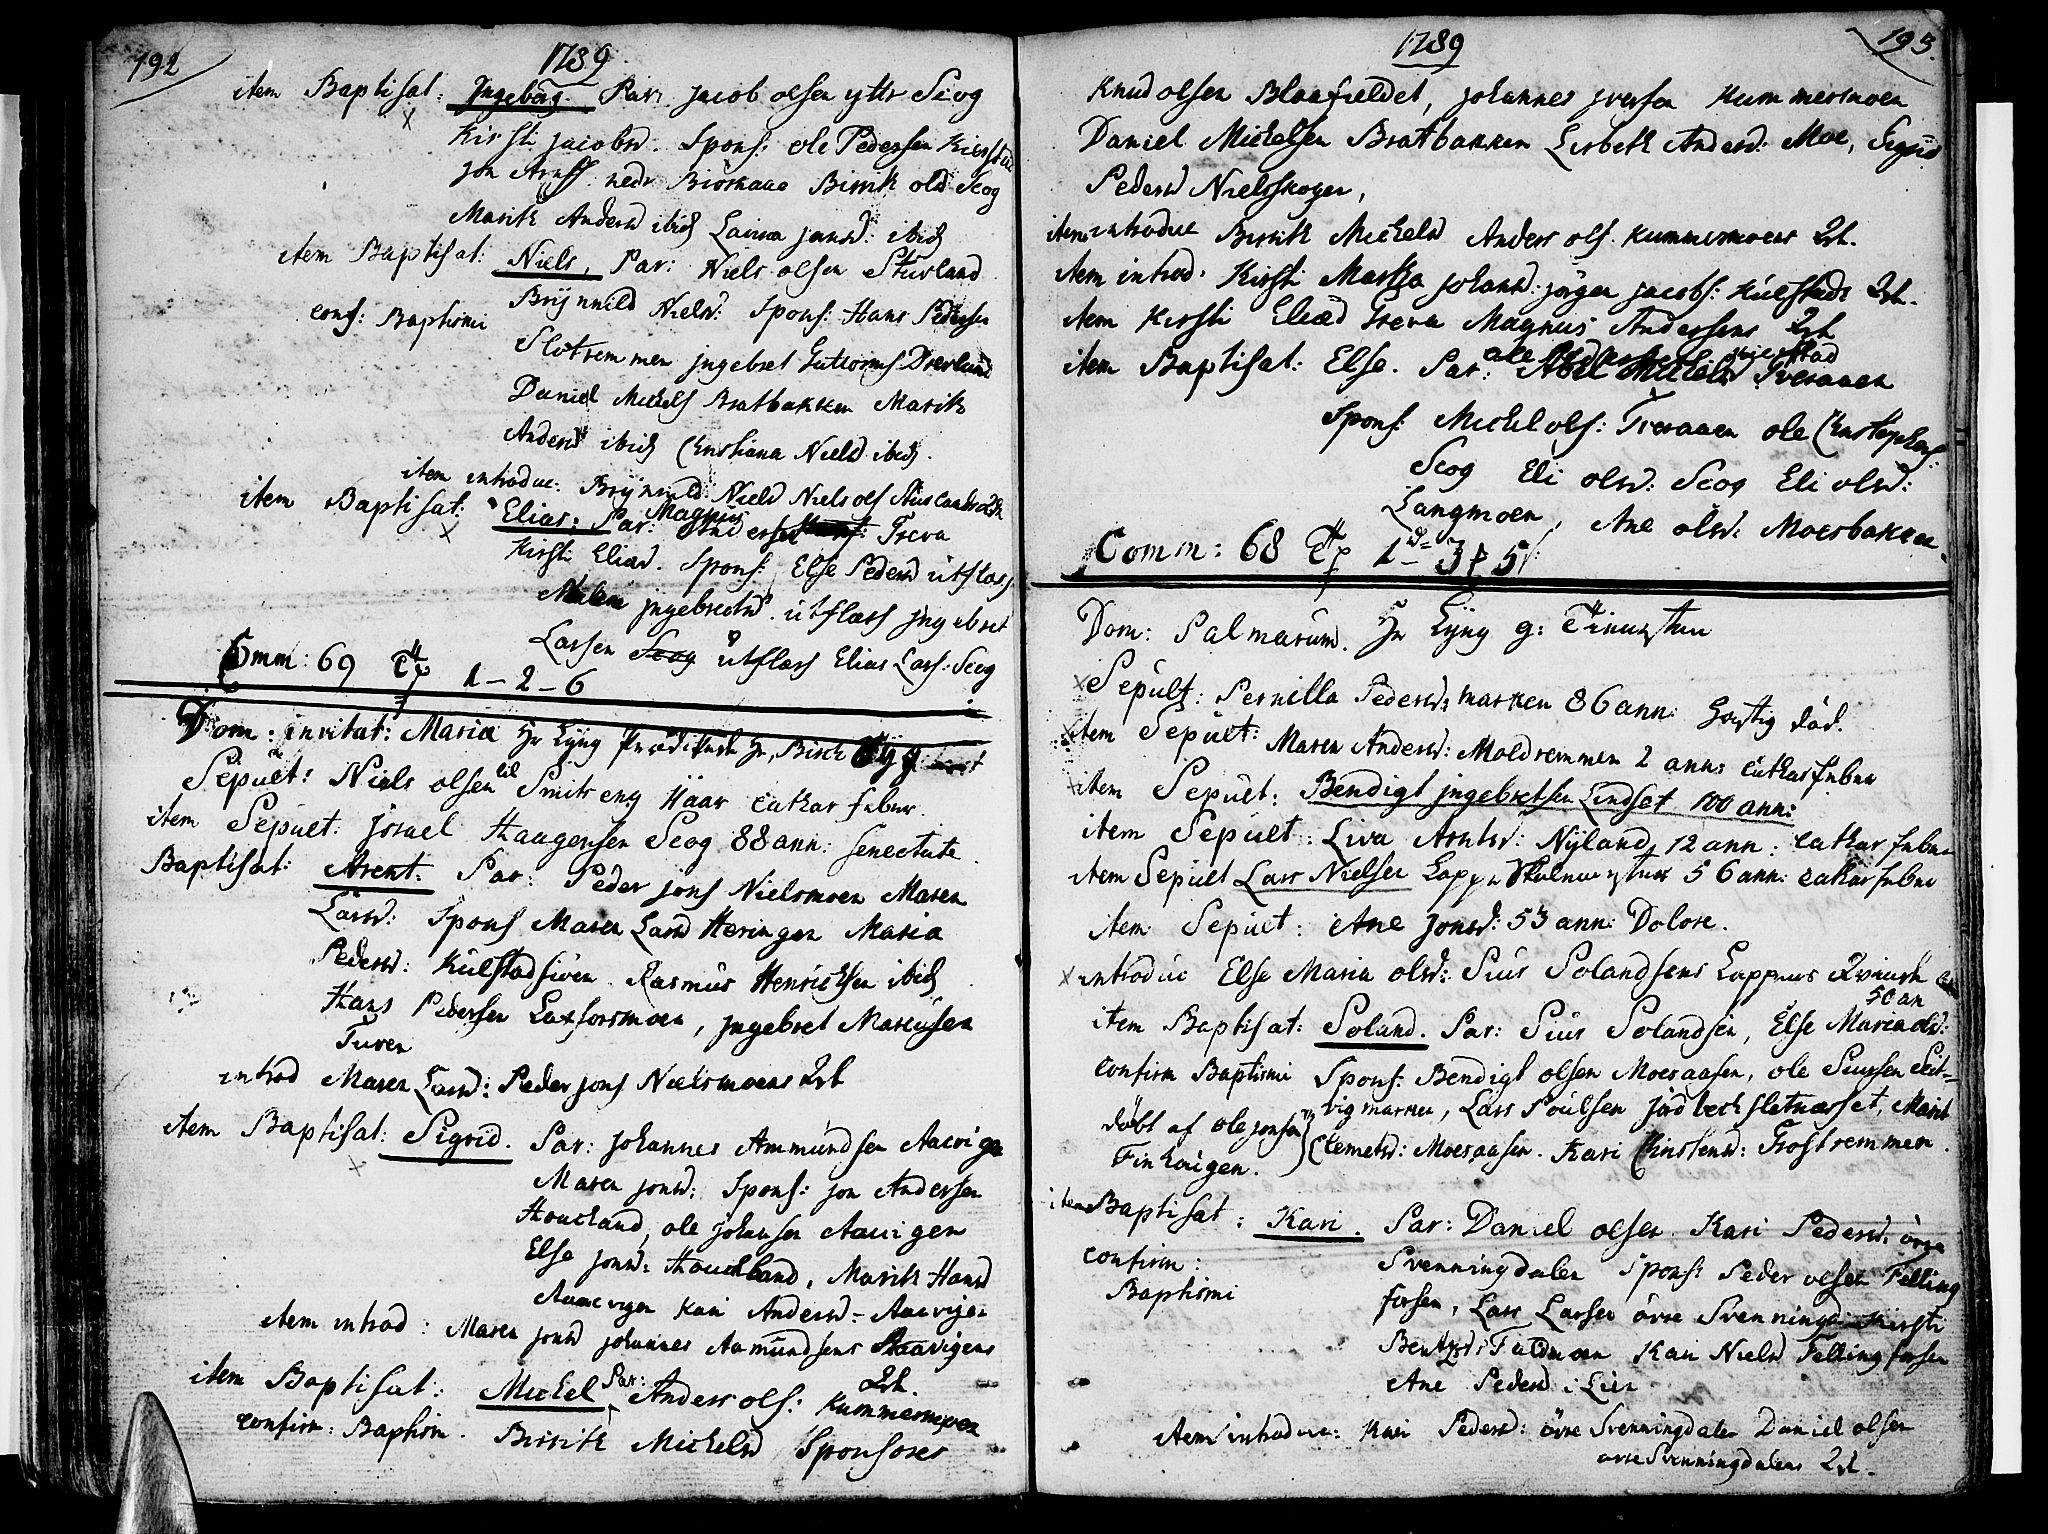 192
1789
item Baptisat: Ingeborg. Par: Jacob olsen yttr Scog
Kirsti Jacobsd. Spons: ole Pedersen Kierstad
Jon nedr Biornaae Birrit olsd Scog
Marit Andersd ibid Laura Jonsd: ibid
item Baptisat: Niels, Par: Niels olsen Sturland
Brÿnnild Nielsd: Spons: Hans Pedersen
conf: Baptismi
Slotremmen Jngebret Guttorms: Drevland
Daniel Michels Bratbakken Marit
Andersd ibid Christiana Nielsd ibid.
item introduc: Brÿnnild Nielsd Niels ols
item Baptisat: Elias: Par: Magnus Andersen Treva
Kirsti Eliasd. Spons: Else Pedersd utflaes
Malena Jngebrectsd utflaes Jngebret
Larsen Scog utflaes Elias Lars: Scog
Comm: 69 1-2-6
Dom: invitat: Maria Hr Lÿng Hr, Birch
Sepult: Niels olsen lil Smitseng Haar cathar febr.
item Sepult: Jsrael Haagensen Scog 88 ann: senectute.
Baptisat: Arent. Par: Peder Jons Nielsmoen Maren
Larsd: Spons Maren Larsd Heringen Maria
Pedersd: Kulstadsiøen Rasmus Henrichsen ibid
Hans Pedersen Laxforsmoen, Jngebret Marcusen
Turen
introd Maren Larsd: Peder Jons Nielsmoens 2sk
item Baptisat: Sigrid. Par: Johannes Ammundsen Aacvigen
Maren Jonsd: Spons: Jon Andersen
Houcland, ole Johansen Aacvigen
Else Jonsd: Houcland, Marit Hansd
Aacvigen Kari Andersd- Aacvigen
item introd: Maren Jonsd Johannes Aamundsens Aacvigens
2sk.
item Baptisat: Mickel Par: Anders ols: Kummermoen
confirm: Baptism. Birrit Mickelsd Sponsores
193.
1789
Knud olsen Blaafieldet, Johannes Jversen Kummermoen
Daniel Mickelsen Bratbakken Lisbeth Andersd: Moe, Sigrid
Pedersd Nielsskogen,
item introduc Birrit Mickelsd Anders ols. Kummermoens 2sk.
item introd: Kirsti Martha Johansd: Jørgen Jacobs: Kulstads 2sk.
item Kirsti Eliæd Treva Magnus Andersens 2sk
item Baptisat: Else. Par: ole Abel Mickelsd Tveraaen
Spons: Mickel ols: Tveraaen ole Christophers:
Scog Eli olsd: Scog Eli olsd:
Langmoen, Ane olsd: Moesbakken.
Comm: 68 1 - 3 5
Dom: Palmarum. Hr Lÿng g:
Sepult: Pernilla Pedersd: marken 86 ann: hastig død.
item Sepult: Maren Andersd: Moldremmen 2 ann: cathar febr
item Sepult: Bendigt Jngebretsen Lindset 100 ann:
item Sepult: Liva Arntsd: Nÿland 12 ann: cathar febr
item Sepult Lars Nielsen Lapp 56 ann: cathar febr
item Sepult: Ane Jonsd: 53 ann: Dolore.
introduc Else Maria olsd: Siur Solandsens Lappens
50 an
item Baptisat: Soland. Par: Siur Solandsen, Else Maria olsd:
confirm Baptismi Spons: Bendigt olsen Moesaasen, ole Siursen
døbt af ole Jonsen vig marken, Lars Poulsen Jordbech sletnæsset, Marit
Finhaugen. Clemetsd: Moesaasen. Kari Christensd: Trostremmen.
item Baptisat: Kari. Par: Daniel olsen Kari Pedersd: øvre
confirm: Svenningdalen Spons: Peder olsen Felling
Baptismi forsen, Lars Larsen øvre Svenningd: Kirsti
Bentsd: Kari Nielsd Fellingforsen
Ane Pedersd i Lien
item introduc: Kari Pedersd: øvre Svenningdalen Daniel olsen
øvre Svenningdalens 2sk.